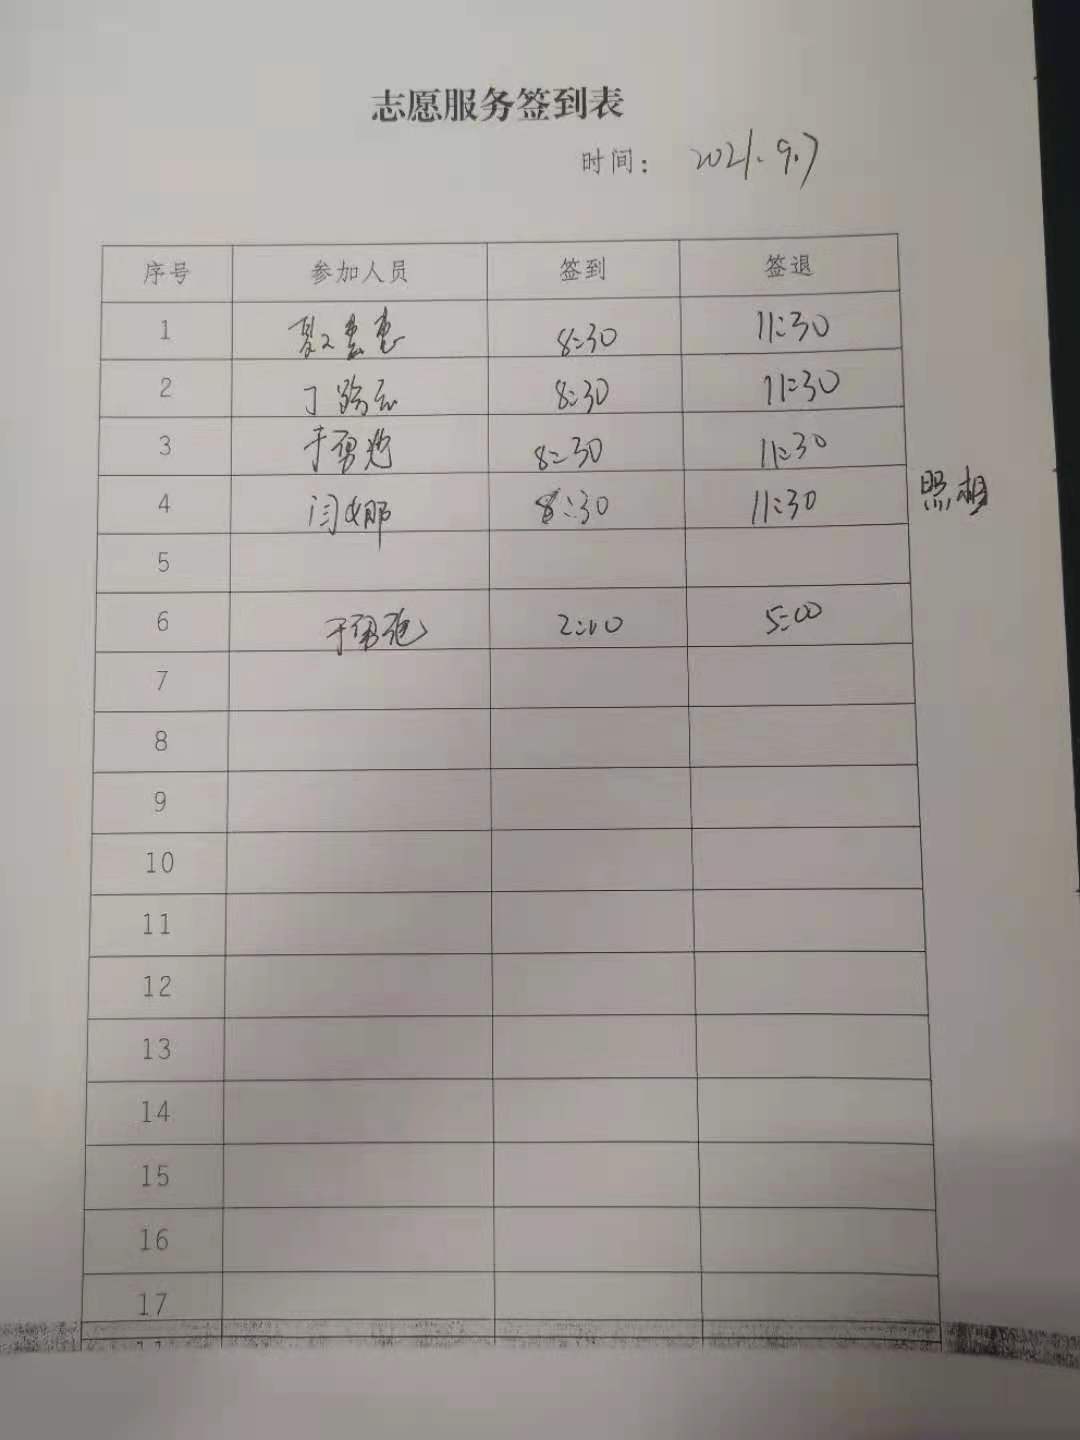 志愿服务签到表
时间： 2021.9.7
序号 参加人员 签到 签退
1 8:30 11:30
2 丁 8:30 11:30
3 于勇 8:30 11:30
4 闫娜 8:30 11:30
照相
5
6 于勇 2:00 5:00
7
8
9
10
11
12
13
14
15
16
17